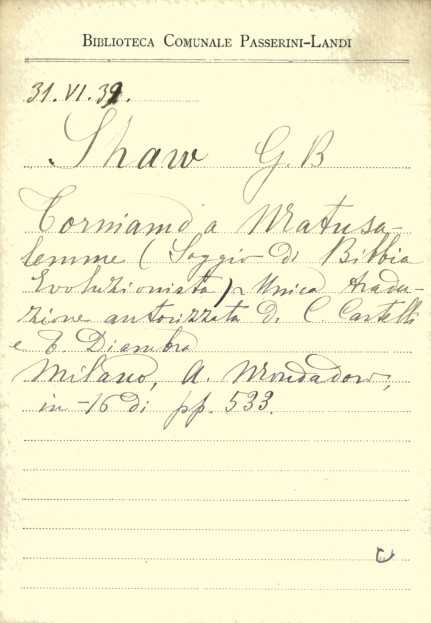 BIBLIOTECA COMUNALE PASSERINI-LANDI
31. VI. 39.
Shaw G. B
Torniamo a Matusa-
lemme (Saggio di Bibbia
Evoluzionista) Unica tradu-
zione autorizzata di C. Castelli
e T. Diambra
Milano, A. Mondadori,
in-16 di pp. 533.